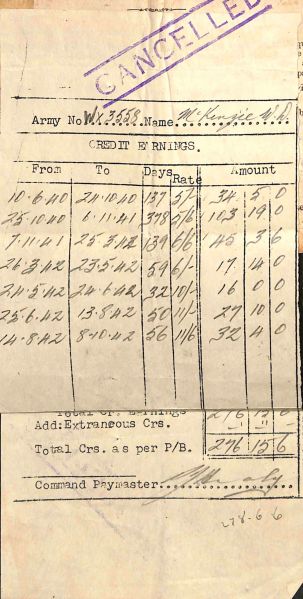 CANCELLED
Army No WX3558 Name McKenzie W.D.
CREDIT EARNINGS.
From To Days Rate Amount
10.6.40 24.10.40 137 5/- 34 5 0
25.10.40 6.11.41 378 5/6 103 19 0
7.11.41 25.3.42 139 6/6 45 3 6
26.3.42 23.5.42 59 6/- 17 14 0
24.5.42 24.6.42 32 10/- 16 0 0
25.6.42 13.8.42 50 11/- 27 10 0
14.8.42 8.10.42 56 11/6 32 4 0
Total Cr. Earnings 276 15 6
Add:Extraneous Crs. " " "
Total Crs. as per P/B. 276 15 6
Command Paymaster
278-6-6